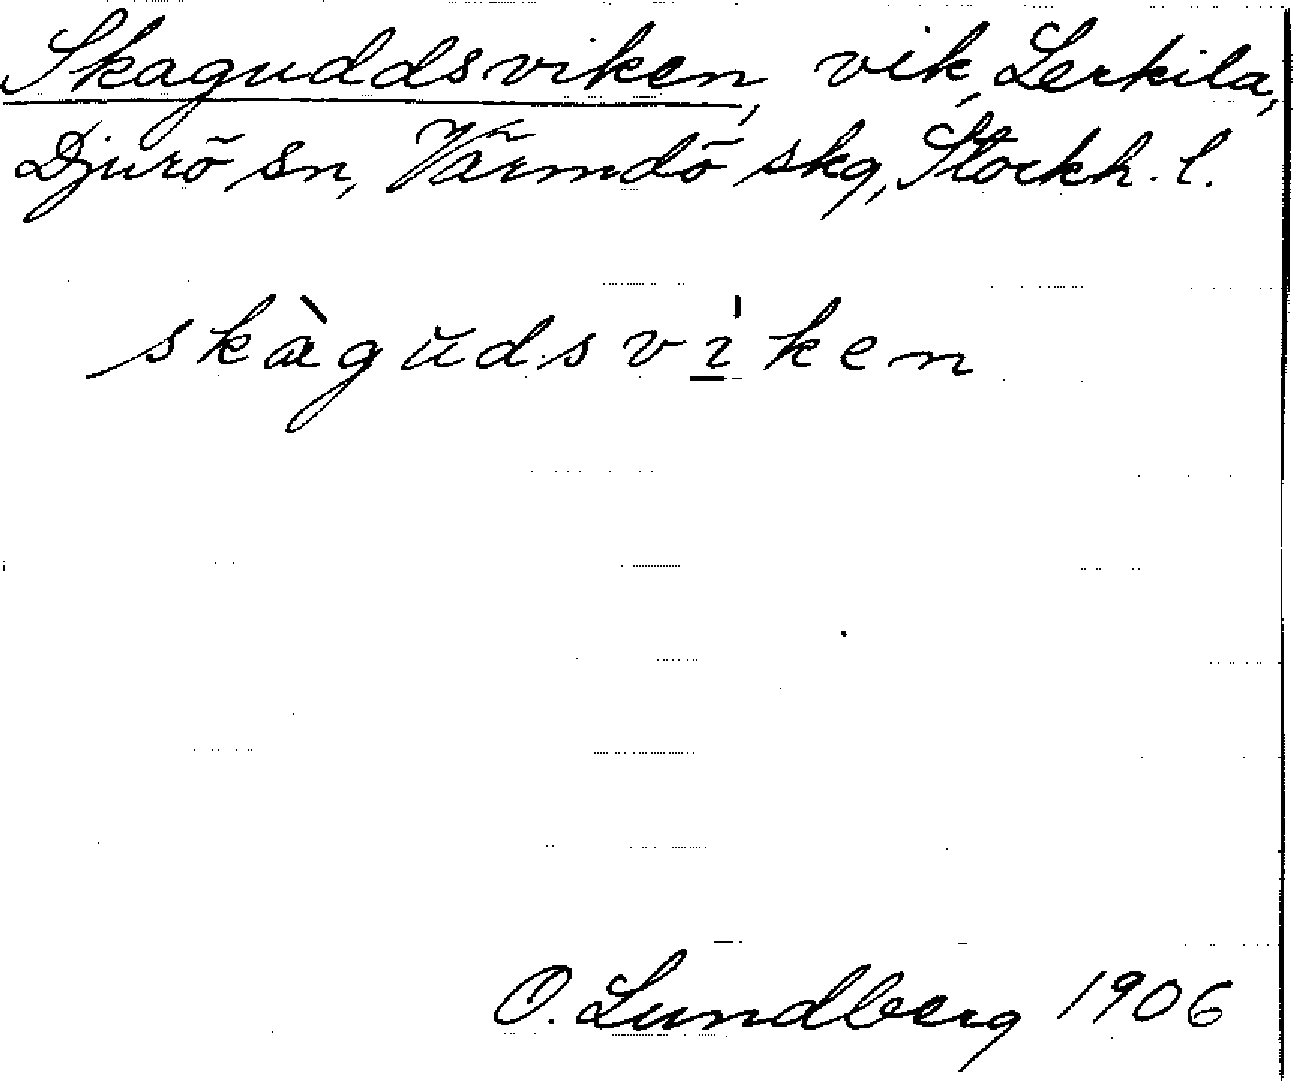 Skaguddsviken, vik, Lerkila,
Djurö sn, Värmdö skg, Stockh. l.
skàgŭdsvı̍ken
O. Lundberg 1906